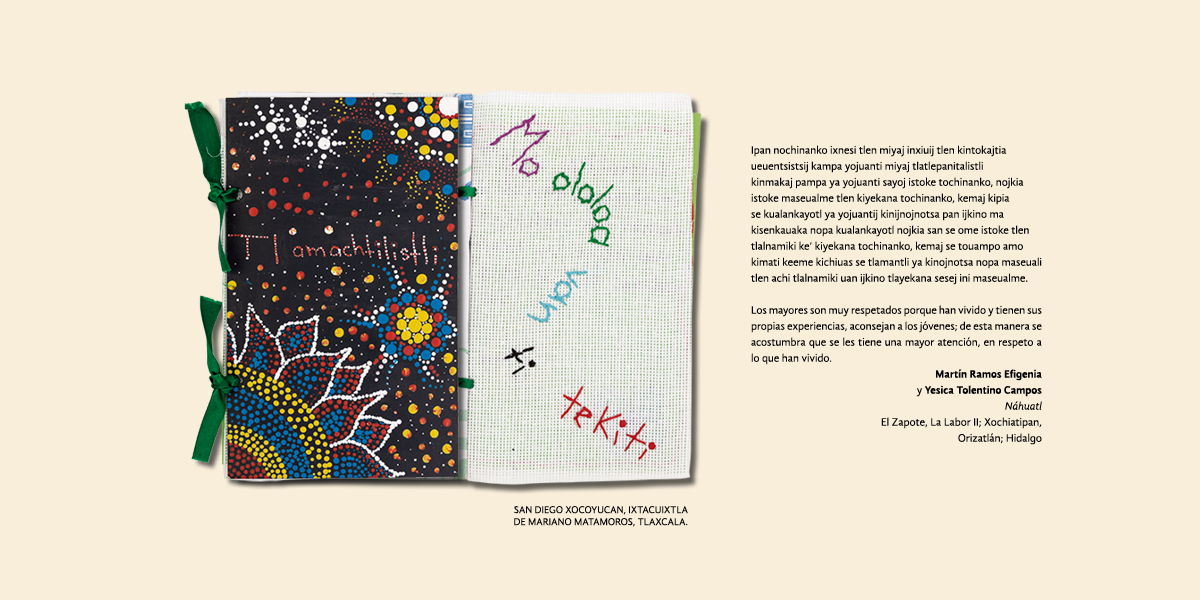 Tlamachtilistli
Mo
ololoa
uan
ti
tekiti
SAN DIEGO XOCOYUCAN, IXTACUIXTLA
DE MARIANO MATAMOROS, TLAXCALA.
Ipan nochinanko ixnesi tlen miyaj inxiuij tlen kintokajtia
ueuentsistsij kampa yojuanti miyaj tlatlepanitalistli
kinmakaj pampa ya yojuanti sayoj istoke tochinanko, nojkia
istoke maseualme tlen kiyekana tochinanko, kemaj kipia
se kualankayotl ya yojuantij kinijnojnotsa pan ijkino ma
kisenkauaka nopa kualankayotl nojkia san se ome istoke tlen
tlalnamiki ke’ kiyekana tochinanko, kemaj se touampo amo
kimati keeme kichiuas se tlamantli ya kinojnotsa nopa maseuali
tlen achi tlalnamiki uan ijkino tlayekana sesej ini maseualme.
Los mayores son muy respetados porque han vivido y tienen sus
propias experiencias, aconsejan a los jóvenes; de esta manera se
acostumbra que se les tiene una mayor atención, en respeto a
lo que han vivido.
Martín Ramos Efigenia
y Yesica Tolentino Campos
Náhuatl
El Zapote, La Labor II; Xochiatipan,
Orizatlán; Hidalgo